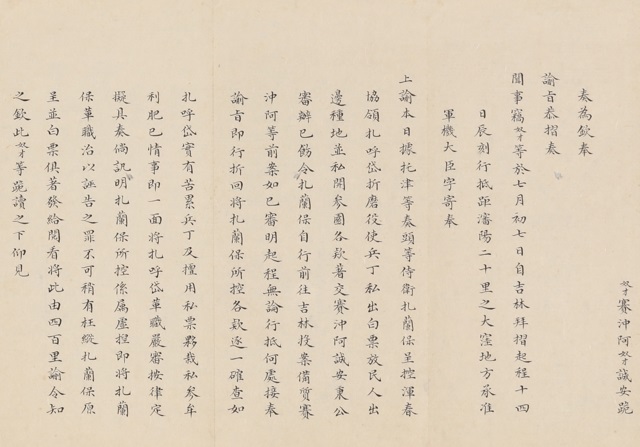 奴才賽沖阿奴才誠安跪
奏為欽奉
諭旨恭摺奏
聞事竊奴才等於七月初七日自吉林拜摺起程十四
日辰刻行抵距瀋陽二十里之大窪地方承准
軍機大臣字寄奉
上諭本日據托津等奏頭等侍衛扎蘭保呈控渾春
協領扎呼岱折磨役使兵丁私出白票放民人出
邊種地並私開參園各款著交賽沖阿誠安秉公
審辦已飭令扎蘭保自行前往吉林投案備質賽
沖阿等前案如已審明起程無論行抵何處接奉
諭旨即行折回將扎蘭保所控各款逐一確查如
扎呼岱實有苦累兵丁及擅用私票夥栽私參牟
利肥己情事即一面將扎呼岱革職嚴審按律定
擬具奏倘訊明扎蘭保所控係屬虛捏即將扎蘭
保革職治以誣告之罪不可稍有枉縱扎蘭保原
呈並白票俱著發給閱看將此由四百里諭令知
之欽此奴才等跪讀之下仰見